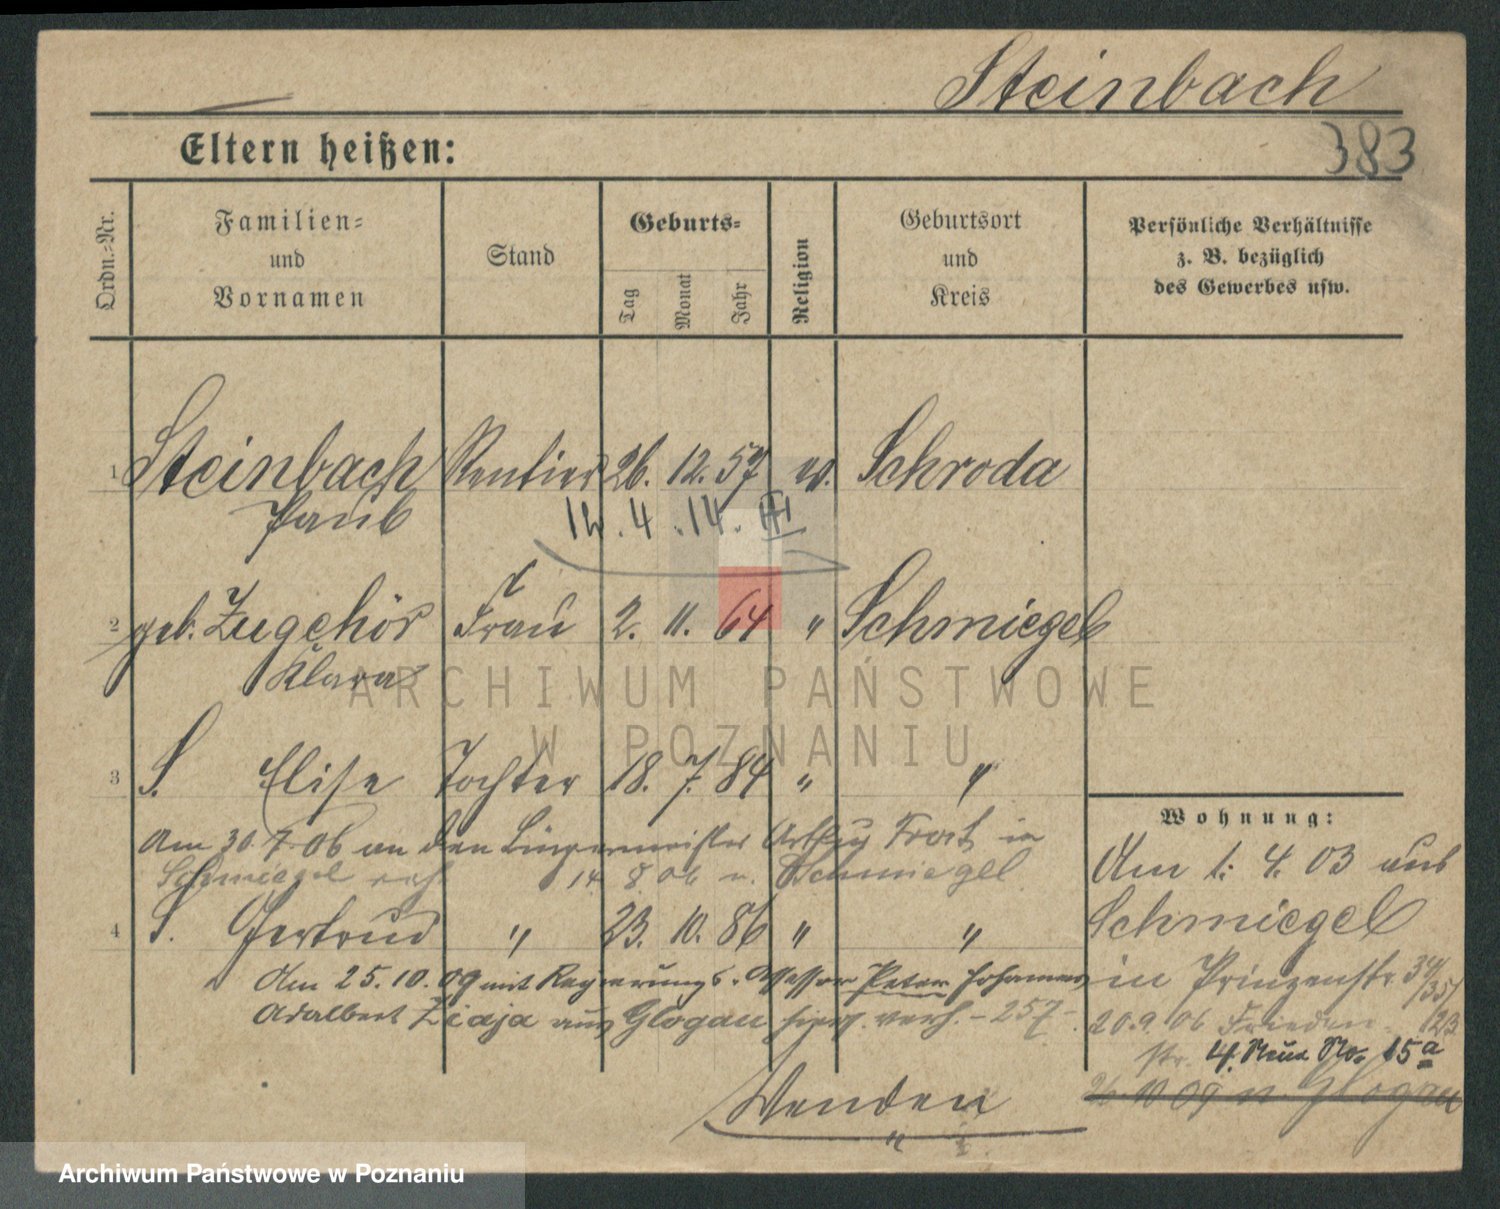 Steinbach
383
Eltern heißen:
Ordn.-Nr.
Familien-
und
Vornamen
Stand
Geburts-
Tag
Monat
Jahr
Religion
Geburtsort
und
Kreis
Persönliche Verhältnisse
z. B. bezüglich
des Gewerbes usw.
1 Steinbach Rentier 26. 12. 57 ev. Schroda
Paul
4. 14.
2 geb. Zugehör Frau 2. 11. 64 " Schmiegel
Klara
3 S. Elise Tochter 18. 7. 84 " "
Am 30. 7. 06 an den Bürgermeister Arthur in
Schmiegel 14. 8. 06 n. Schmiegel
4 S. Gertrud " 23. 10. 86 " "
Am 25. 10. 09 mit Regierungs-Assessor Peter Johannes
Adalbert Ziaja aus Glogau verh. - 257 -
Wenden
Wohnung:
Am 1. 4. 03 aus
Schmiegel
in Prinzenstr. 34/35
20. 9. 06 Frieden- 23
str. 4. Neue No. 15a
26. 10 09 n. Glogau
ARCHIWUM PAŃSTWOWE
W POZNANIU
Archiwum Państwowe w Poznaniu